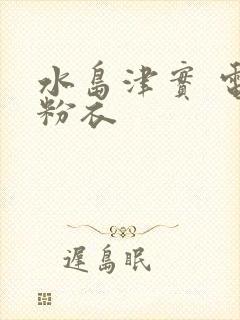 水島津實 電
粉衣
遲島眠